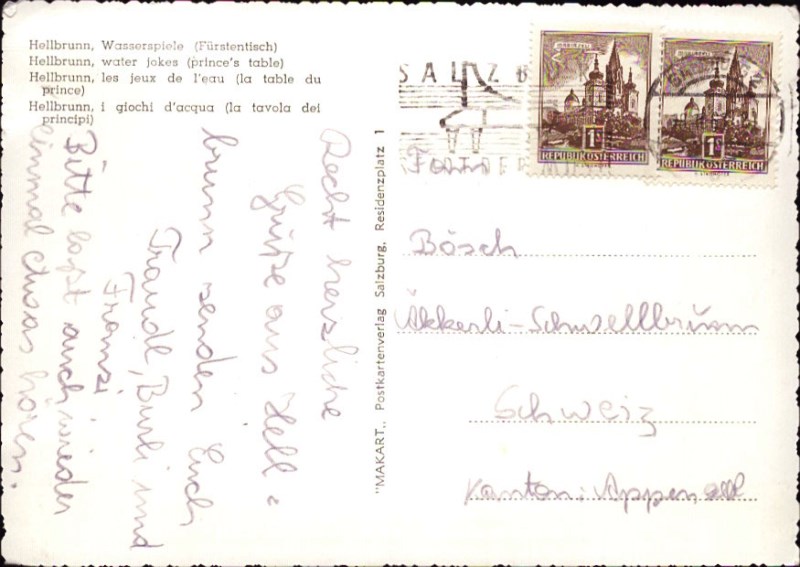 Hellbrunn, Wasserspiele (Fürstentisch)
Hellbrunn, water jokes (prince's table)
Hellbrunn, les jeux de l'eau (la table du
prince)
Hellbrunn, i giochi d'acqua (la tavola dei
principi)
Recht herzliche
Grüße aus Hell=
brunn senden Euch
Traudl, Burli und
Franzi
Bitte laßt auch wieder
einmal etwas hören.
"MAKART", Postkartenverlag Salzburg, Residenzplatz 1
SALZB
MARIAZELL
1
REPUBLIK ÖSTERREICH
MARIAZELL
1
REPUBLIK ÖSTERREICH
Fam.
Bösch
Äkkerli-Schwellbrunn
Schweiz
Kanton: Appenzell